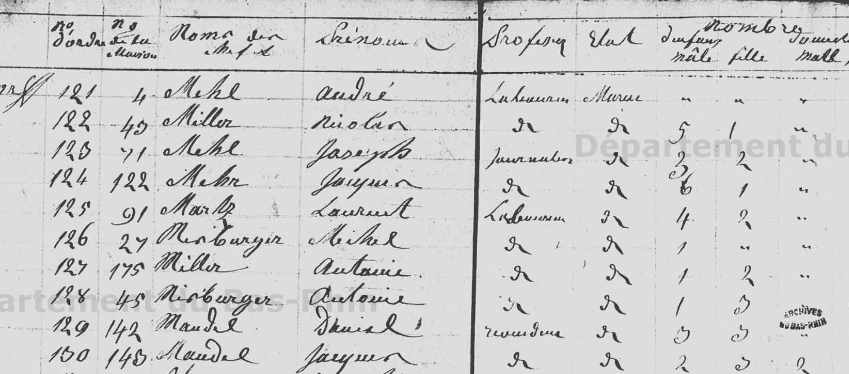 No d'ordre No de la Maison Noms des Chefs Prénoms Profession Etat Nombre d'enfans mâle fille
121 4 Mehl André Laboureur Marié " " "
122 43 Miller Nicolas do do 5 1 "
123 71 Mehl Joseph Journalier do 2 2 "
124 122 Mehr Jacques do do 6 1 "
125 91 Martz Laurent Laboureur do 4 2 "
126 27 Nisburger Michel do do 1 " "
127 175 Miller Antoine do do 1 2 "
128 45 Nisburger Antoine do do 1 3
129 142 Mandel Daniel do 3 3 "
130 143 Mandel Jacques do do 2 3 2
Département du Bas-Rhin
Département du
ARCHIVES DU BAS-RHIN